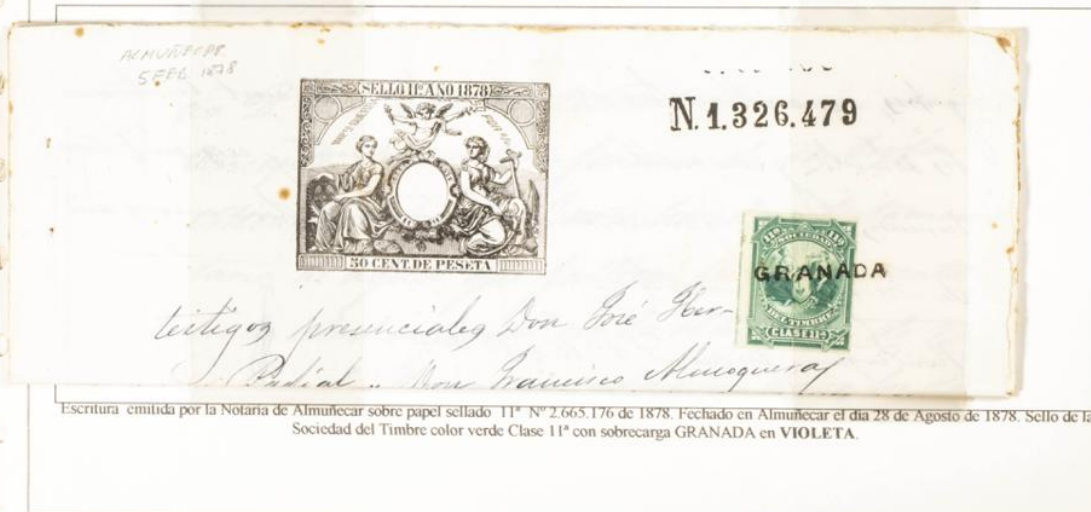 ALMUÑECAR
5 FEB 1878
SELLO 11º AÑO 1878
50 CENT. DE PESETA
N. 1.326.479
11º SOCIEDAD 11º
GRANADA
DEL TIMBRE
CLASE 11ª
testigos presenciales Don José Her-
Padial .. Don Francisco
Escritura emitida por la Notaria de Almuñecar sobre papel sellado 11ª Nº 2.665.176 de 1878. Fechado en Almuñecar el dia 28 de Agosto de 1878. Sello de la
Sociedad del Timbre color verde Clase 11ª con sobrecarga GRANADA en VIOLETA.